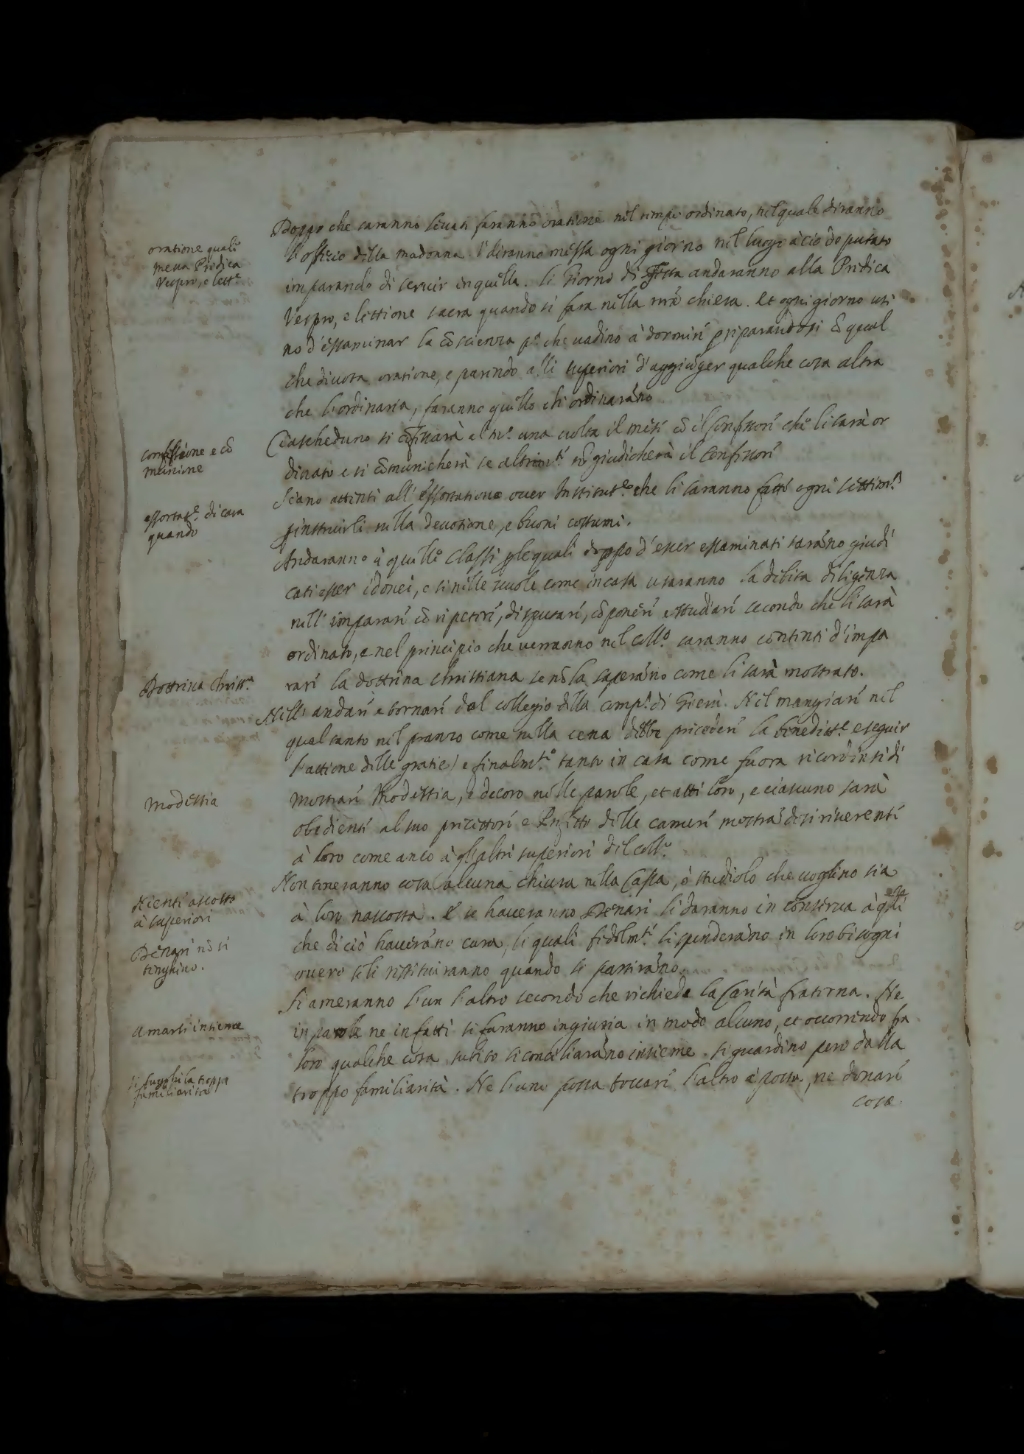 Doppo che saranno levati faranno oratione nel tempo ordinato, nel quale diranno
l'officio della madonna. Udiranno messa ogni giorno nel luogo à ciò deputato
imparando di servir in quella. li Giorni di festa andaranno alla Predica
Vespro, e lettione sacra quando si farà nella nrã chiesa. Et ogni giorno usi
no d'essaminar la cõscienza pª che vadino à dormire preparandosi cõ qual
che divota oratione, e parendo alli superiori d'aggiũger qualche cosa altra
che l'ordinaria, faranno quello che ordinarãno.
oratione quale
messa Predica
Vespro, e lett.ᵉ
Ciascheduno si cõfessarà al mº una volta il mese cõ il Confessore che li sarà or
dinato e si cõmunicherà se altrimẽti nõ giudicherà il Confessore
confessione e cõ
munione
Siano attenti all'essortatione over Institut.ᵉ che li saranno fatte ogni settim.ª
p instruirli nella devotione, e buoni costumi.
essortat.ᵉ di casa
quando
Andaranno à quelle classi p le quali doppo d'esser essaminati sarãno giudi
cati esser idonei, e si nelle scuole come in casa usaranno la debita diligenza
nell'imparare cõ ripetere, disputare, cõponere e studiare secondo che li sarà
ordinato, e nel principio che verranno nel coll.º saranno contenti d'impa
rare la dottrina christiana se nõ la saperãno come li sarà mostrato.
Dottrina christ.ª
Nell'andare e tornare dal collegio della comp.ª di Giesù. Nel mangiare nel
qual tanto nel pranzo come nella cena debbe precedere la benedict.ᵉ e seguir
l'attione delle gratie) e finalm.ᵉ tanto in casa come fuora ricordinsi di
mostrare modestia, e decoro nelle parole, et atti loro, e ciascuno sarà
obediente al suo precettore e Prefetto delle camere mostrãdosi riverenti
à loro come anco à gli altri superiori del coll.º
modestia
Non terranno cosa alcuna chiusa nella Cassa, ò studiolo che voglino sia
à loro nascosta. E se haveranno Denari li daranno in conserva à q̃lli
che di ciò haverãno cura, li quali fidelm.ᵗᵉ li spenderãno in loro bisogni
overo se li restituiranno quando si partirãno
Nienti ascosto
à superiori
Denari nõ si
tenghino.
Si ameranno l'un l'altro secondo che richiede la Carità fraterna. Ne
in parole ne in fatti si faranno ingiuria in modo alcuno, et occorrendo fra
loro qualche cosa subito si conciliarãno insieme. si guardino però dalla
troppo familiarità. Ne l'uno possa toccare l'altro à posta, ne donare
cosa
Amarsi insieme
Si fugghi la troppa
familiarità